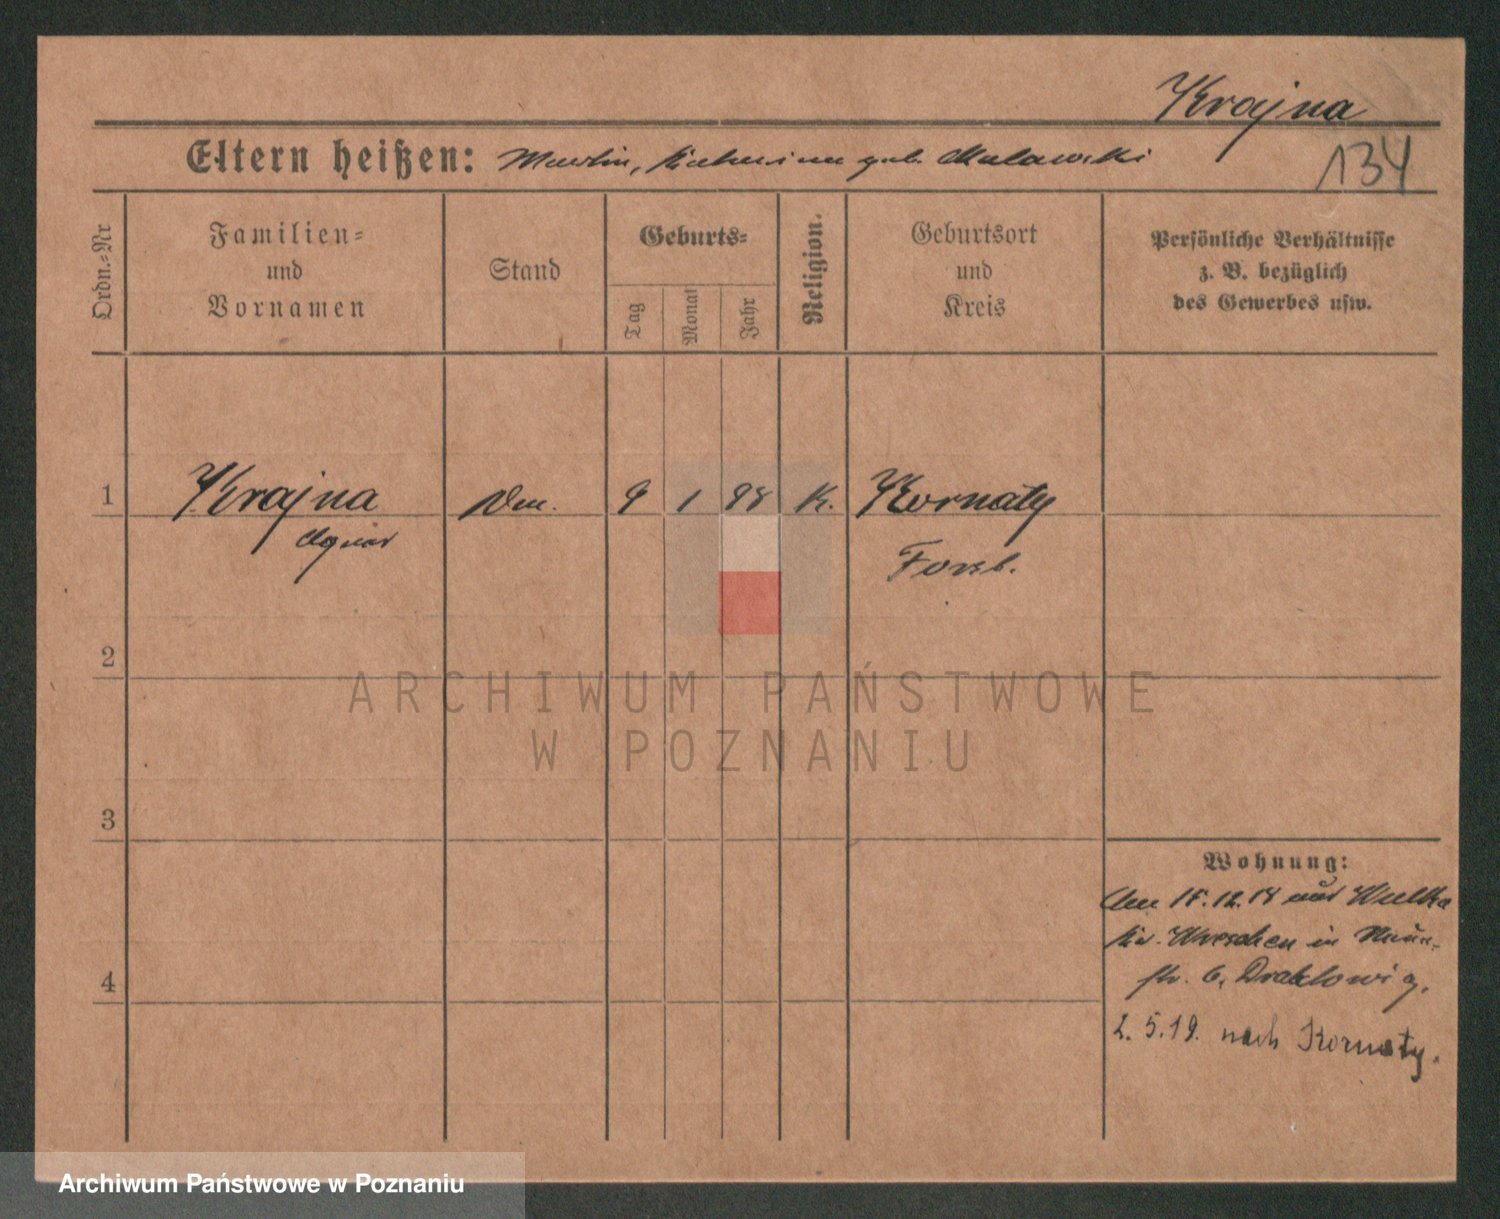 Krajna
Eltern heißen: Martin, Katharina geb. Malawski
134
Ordn.-Nr
Familien-
und
Vornamen
Stand
Geburts-
Tag
Monat
Jahr
Religion.
Geburtsort
und
Kreis
Persönliche Verhältnisse
z. B. bezüglich
des Gewerbes usw.
1 Krajna 9 1 98 K. Kornaty
Agnes
2
3
4
Wohnung:
Am 15.12.18 aus Wulka
Kr. Wreschen in Naum-
str. 6,
2.5.19. nach Kornaty.
ARCHIWUM PAŃSTWOWE
W POZNANIU
Archiwum Państwowe w Poznaniu